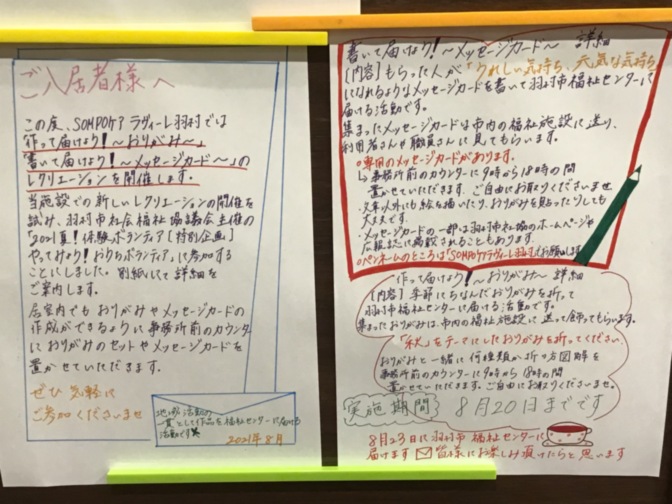 ご入居者様へ
この度、SOMPOケア ラヴィーレ羽村では
作って届けよう!〜おりがみ〜
書いて届けよう!〜メッセージカード〜」の
レクリエーションを開催します。
当施設での新しいレクリエーションの開催を
試み、羽村市社会福祉協議会主催の
「2021夏!体験ボランティア[特別企画]
やってみよう!おうちボランティア」に参加する
ことにしました。別紙にて詳細を
ご案内します。
居室内でもおりがみやメッセージカードの
作成ができるように事務所前のカウンター
におりがみのセットやメッセージカードを
置かせていただきます。
ぜひ気軽に
ご参加くださいませ
地域活動の
一貫として作品を福祉センターに届ける
活動です
2021年8月
書いて届けよう!〜メッセージカード〜 詳細
[内容]もらった人が「うれしい気持ち、元気な気持ち
になれるようなメッセージカードを書いて羽村市福祉センターに
届ける活動です。
集まったメッセージカードは市内の福祉施設に送り、
利用者さんや職員さんに見てもらいます。
○専用のメッセージカードがあります。
↳事務所前のカウンターに9時から18時の間
置かせていただきます。ご自由にお取りくださいませ
・文章以外にも絵を描いたり、おりがみを貼ったりしても
大丈夫です。
・メッセージカードの一部は羽村市社協のホームページや
広報誌に掲載されることもあります。
○ペンネームのところは「SOMPOケアラヴィーレ羽村」でお願いします
作って届けよう!〜おりがみ〜 詳細
[内容]季節にちなんだおりがみを折って
羽村市福祉センターに届ける活動です。
集まったおりがみは、市内の福祉施設に送って飾ってもらいます。
「秋」をテーマにしたおりがみを折ってください
おりがみと一緒に何種類か折り方図解を
事務所前のカウンターに9時から18時の間
置かせていただきます。ご自由にお取りくださいませ。
実施期間 8月20日までです
8月23日に羽村市福祉センターに
届けます 皆様にお楽しみ頂けたらと思います